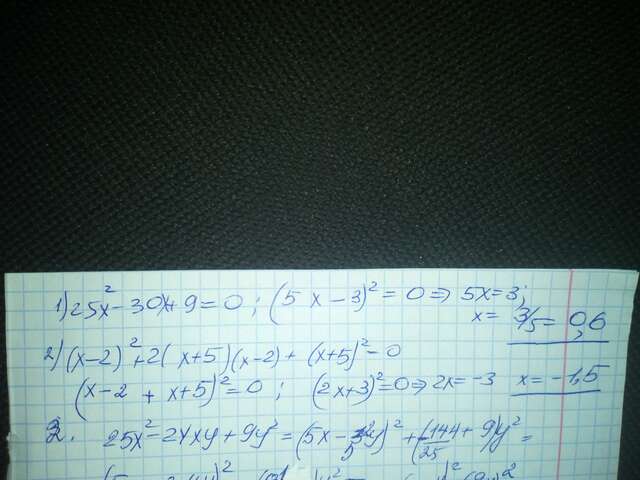 1) 25x² - 30x + 9 = 0 ; (5x - 3)² = 0 ⇒ 5x = 3;
x = 3/5 = 0,6
2) (x-2)² + 2(x+5)(x-2) + (x+5)² = 0
(x-2 + x+5)² = 0 ; (2x+3)² = 0 ⇒ 2x = -3 x = -1,5
3. 25x² - 24xy + 9y² = (5x - y)² + (144/25 + 9)y² =